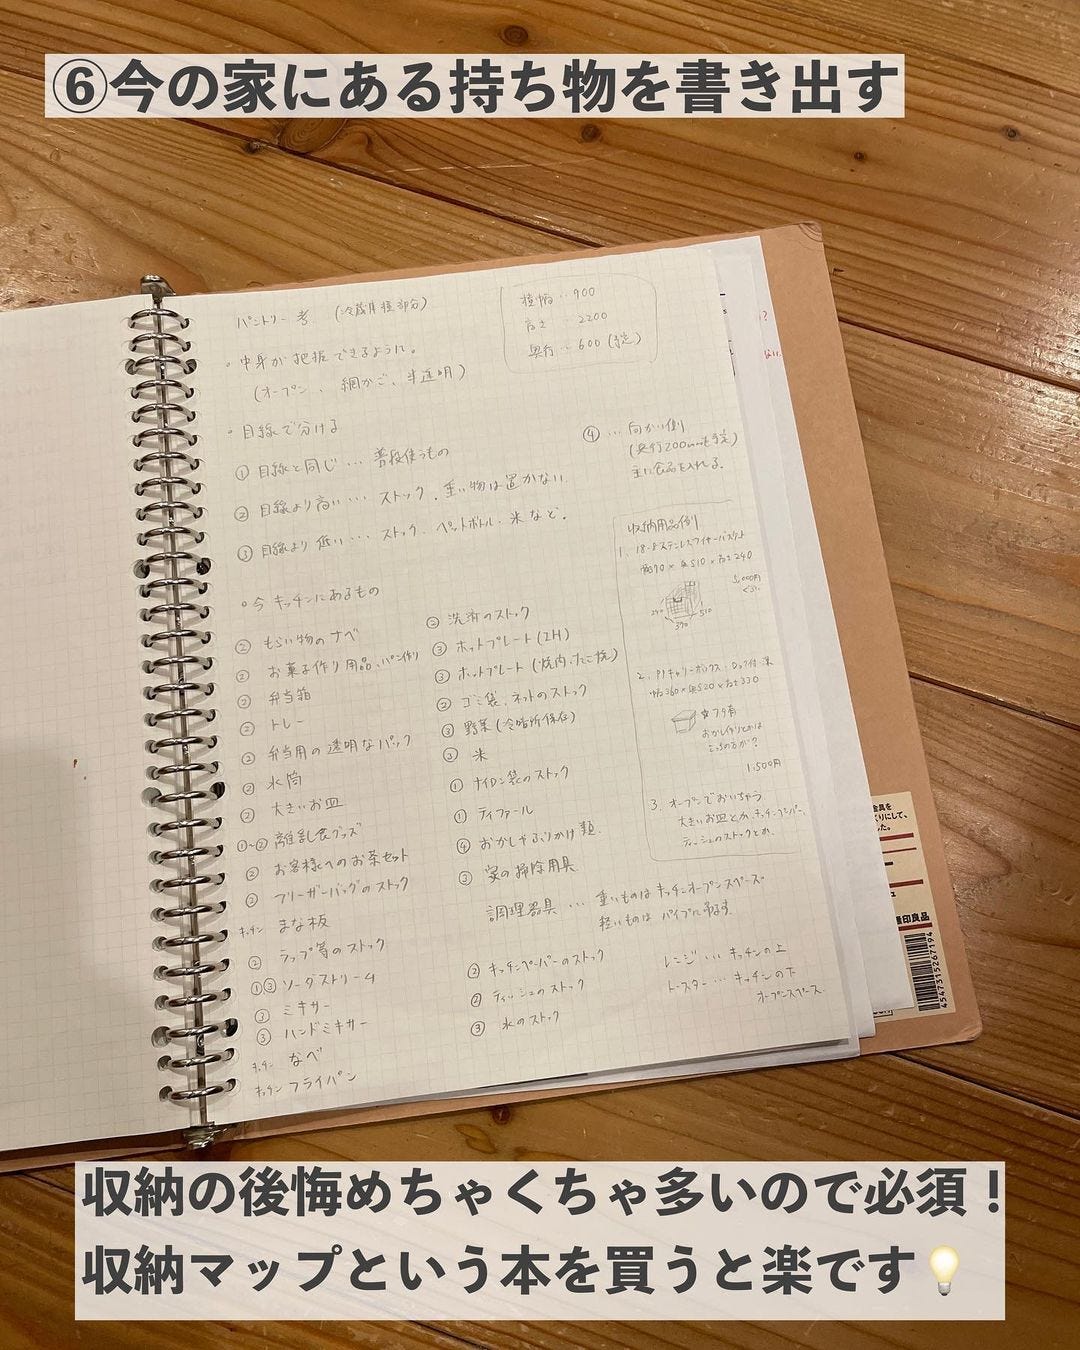 ⑥今の家にある持ち物を書き出す
パントリー考 (冷蔵庫横部分)
横幅‥900
高さ‥2200
奥行‥600(予定)
・中身が把握できるように。
(オープン、網かご、半透明)
・目線で分ける
①目線と同じ…普段使うもの
②目線より高い…ストック、重い物は置かない
③目線より低い…ストック、ペットボトル・米など。
④…向かい側
(奥行200mmを予定)
主に食品を入れる。
・今キッチンにあるもの
②もらい物のナベ
②お菓子作り用品、パン作り
②弁当箱
②トレー
②弁当用の透明なパック
②水筒
②大きいお皿
①~②離乳食グッズ
②お客様へのお茶セット
②フリーザーバッグのストック
キッチン まな板
②ラップ等のストック
①③ソーダストリーム
③ミキサー
③ハンドミキサー
キッチン なべ
キッチン フライパン
②洗済のストック
③ホットプレート(IH)
③ホットプレート(焼肉、たこ焼)
②ゴミ袋、ネットのストック
③野菜(冷暗所保存)
③米
①ナイロン袋のストック
①ティファール
④おかしやふりかけ類
③家の掃除用具
調理器具…重いものはキッチンオープンスペース
軽いものはパイプに吊るす
②キッチンペーパーのストック
②ティッシュのストック
③水のストック
レンジ…キッチンの上
トースター…キッチンの下
オープンスペース
収納用品例
1、18-8ステンレスワイヤーバスケット
幅370×奥510×高さ240
5,000円
くらい
240
370
510
2、PPキャリーボックス・ロック付・深
幅360×奥520×高さ330
☆フタ有
おかし作りとかは
こっちのるが?
1,500円
3、オープンでおいちゃう
大きいお皿とか、キッチンペーパー、
ティッシュのストックとか。
金具を
くりにして、
した。
無印良品
4547315267194
収納の後悔めちゃくちゃ多いので必須！
収納マップという本を買うと楽です💡